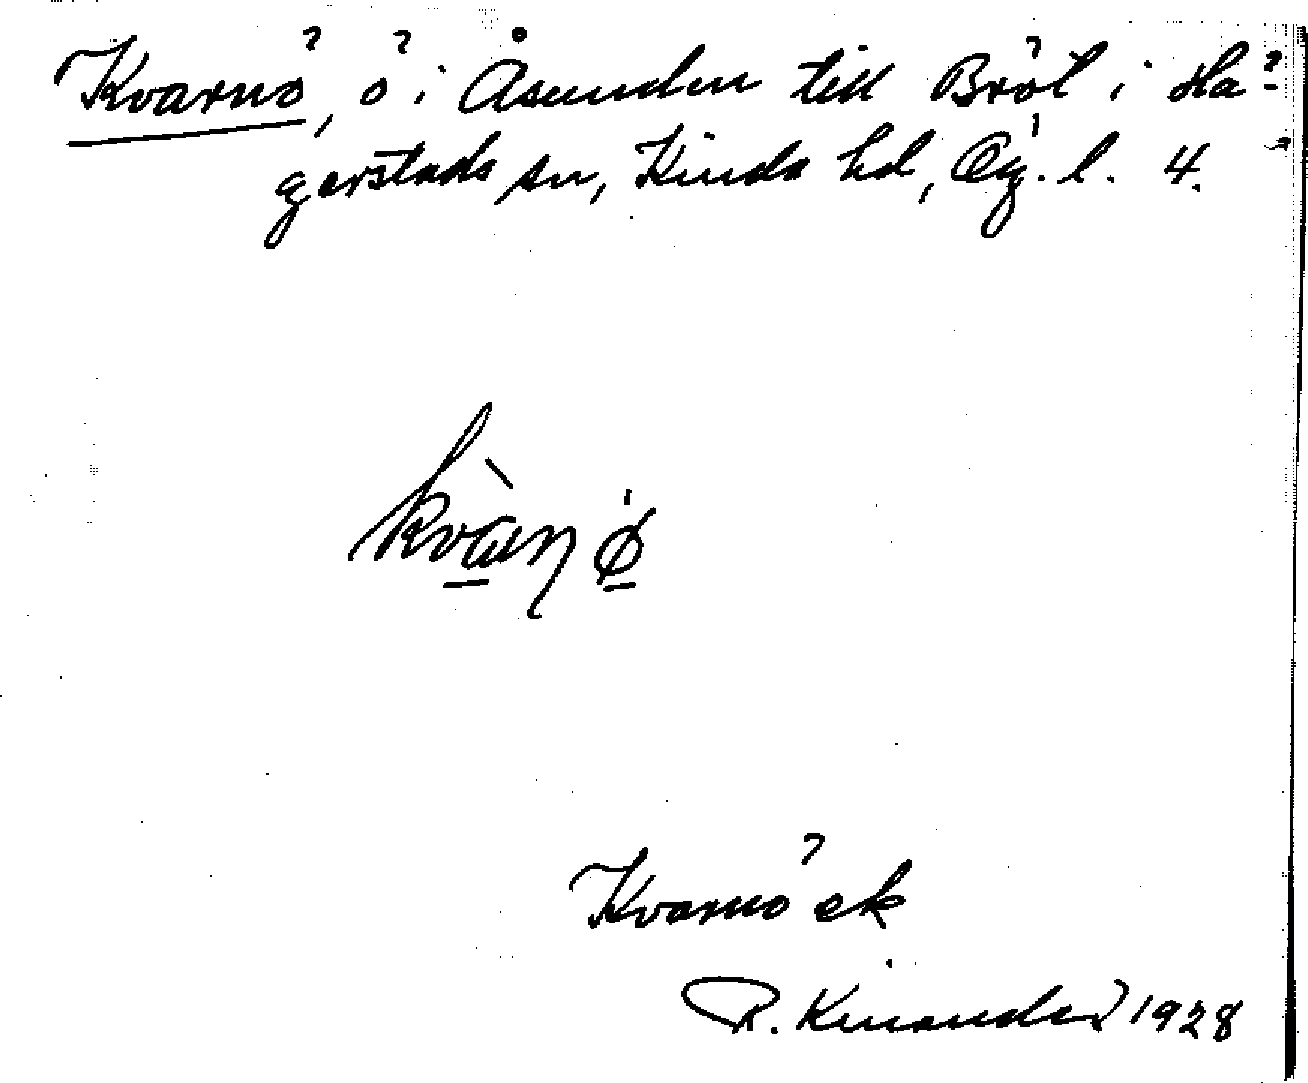 Kvarnö, ö i Åsunden till Bröt i Hä-
gerstads sn, Kinda hd, Ög. l. 4.
kvàṇø
Kvarnö ek
R. Kinander 1928